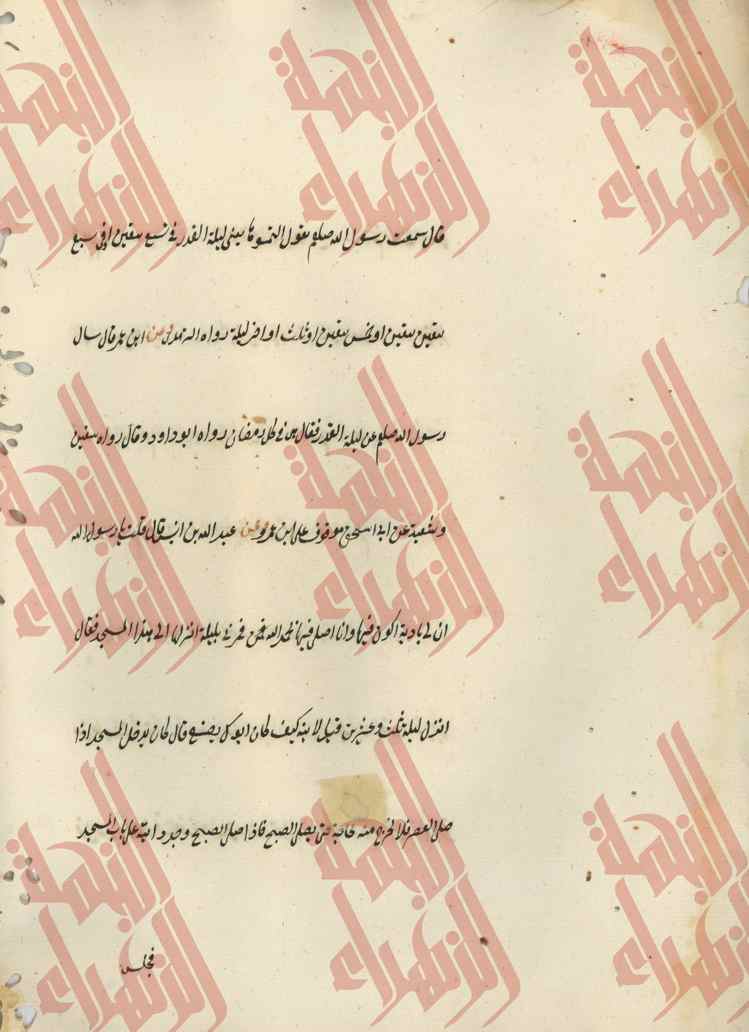 قال سمعت رسول الله صلعم يقول التمسوها يعني ليلة القدر في تسع يبقين او في سبع
يبقين او خمس يبقين او ثلث او اخر ليلة رواه الترمذي وعن ابن عمر قال سال
رسول الله صلعم عن ليلة القدر فقال هي في كل رمضان رواه ابو داود وقال رواه سفين
وشعبة عن ابي اسحق موقوف على ابن عمر وعن عبد الله بن انيس قال قلت يا رسول الله
ان لي بادية اكون فيها وانا اصلي فيها بحمد الله فمرني بليلة انزلها الى هذا المسجد فقال
انزل ليلة ثلث وعشرين قيل لابنه كيف كان ابوك يصنع قال كان يدخل المسجد اذا
صلى العصر فلا يخرج منه لحاجة حتى يصلي الصبح فاذا صلى الصبح وجد دابته على باب المسجد
فجلس